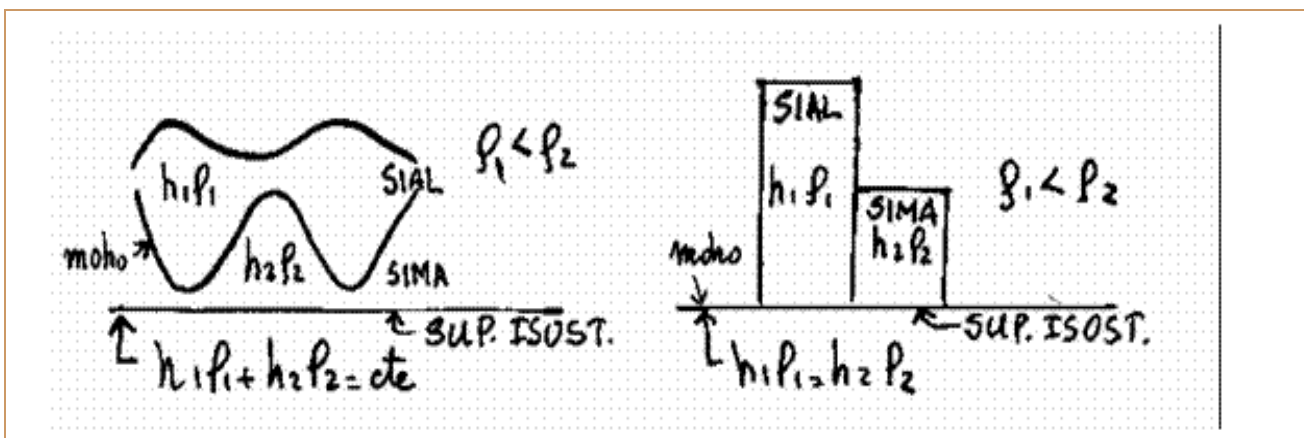 h₁ρ₁
SIAL
ρ₁ < ρ₂
moho
h₂ρ₂
SIMA
SUP. ISOST.
h₁ρ₁ + h₂ρ₂ = cte
SIAL
h₁ρ₁
ρ₁ < ρ₂
SIMA
h₂ρ₂
moho
SUP. ISOST.
h₁ρ₁ = h₂ρ₂